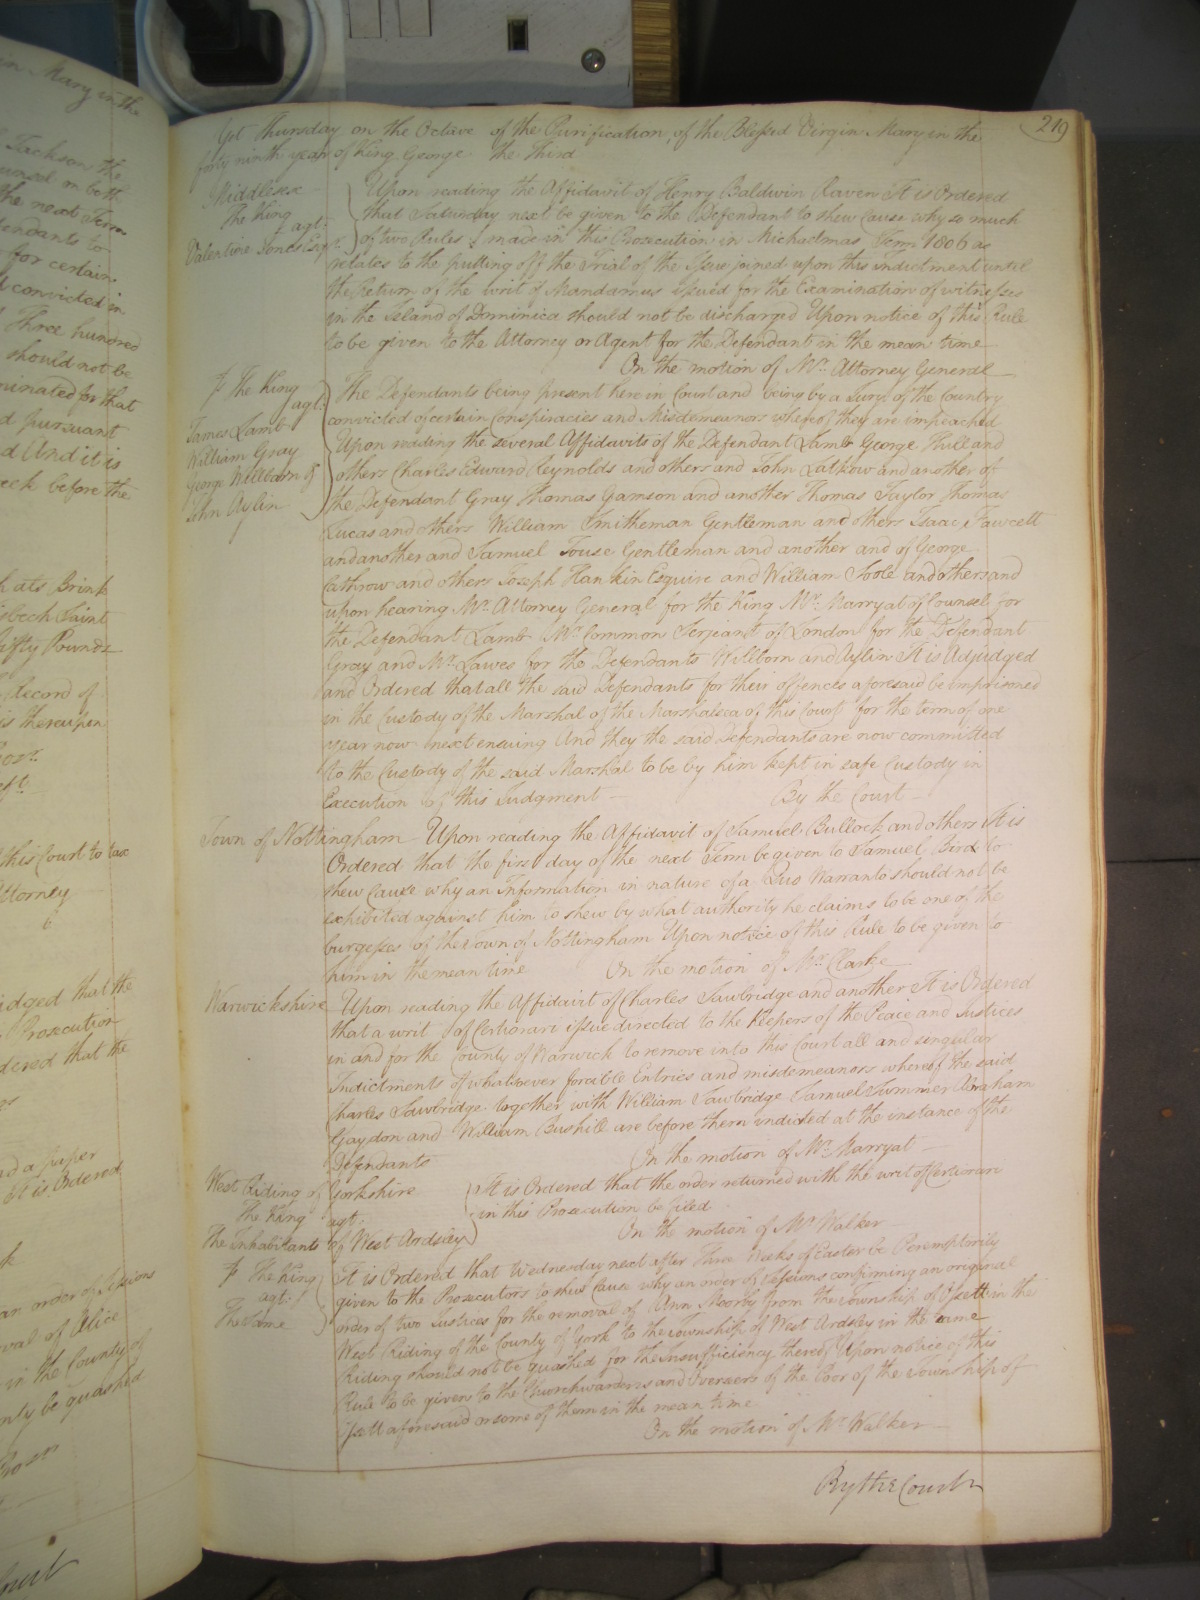 219
Yet Thursday on the Octave of the Purification of the Blessed Virgin Mary in the
forty ninth year of King George the Third
Middlesex
The King
agt.
Valentine Jones Esqr.
Upon reading the Affidavit of Henry Baldwin Raven It is Ordered
that Saturday next be given to the Defendant to shew cause why so much
of two Rules made in this Prosecution in Michaelmas Term 1806 as
relates to the putting off the Trial of the Issue joined upon this indictment until
the Return of the writ of Mandamus issued for the Examination of witnesses
in the Island of Dominica should not be discharged Upon notice of this Rule
to be given to the Attorney or Agent for the Defendant in the mean time
On the motion of Mr. Attorney General
The King
agt.
James Lamb
William Gray
George Willborn &
John Aylin
The Defendants being present here in Court and being by a Jury of the Country
convicted of certain Conspiracies and Misdemeanors whereof they are impeached
Upon reading the several Affidavits of the Defendant Lamb George Hull and
others Charles Edward Reynolds and others and John Latkow and another of
the Defendant Gray Thomas Gamson and another Thomas Taylor Thomas
Lucas and others William Smitheman Gentleman and others Isaac Fawcett
and another and Samuel Touse Gentleman and another and of George
Cathrow and others Joseph Hankin Esquire and William Toole and others and
upon hearing Mr. Attorney General for the King Mr. Marryat of Counsel for
the Defendant Lamb Mr. Common Serjeant of London for the Defendant
Gray and Mr. Lawes for the Defendants Willborn and Aylin It is Adjudged
and Ordered that all the said Defendants for their offences aforesaid be imprisoned
in the Custody of the Marshal of the Marshalsea of this Court for the term of one
year now next ensuing And they the said Defendants are now committed
to the Custody of the said Marshal to be by him kept in safe Custody in
Execution of this Judgment By the Court
Town of Nottingham Upon reading the Affidavit of Samuel Bullock and others It is
Ordered that the first day of the next Term be given to Samuel Bird to
shew Cause why an Information in nature of a Quo Warranto should not be
exhibited against him to shew by what authority he claims to be one of the
burgesses of the Town of Nottingham Upon notice of this Rule to be given to
him in the mean time On the motion of Mr. Clarke
Warwickshire Upon reading the Affidavit of Charles Sawbridge and another It is Ordered
that a writ of Certiorari issue directed to the Keepers of the Peace and Justices
in and for the County of Warwick to remove into this Court all and singular
Indictments of whatsoever forcible Entries and misdemeanors whereof the said
Charles Sawbridge together with William Sawbridge Samuel Summer Abraham
Gaydon and William Bushill are before them indicted at the instance of the
Defendants On the motion of Mr. Marryat
West Riding of Yorkshire
The King
agt.
The Inhabitants of West Ardsley
It is Ordered that the order returned with the writ of Certiorari
in this Prosecution be filed
On the motion of Mr. Walker
The King
agt.
The Same
It is Ordered that Wednesday next after Three Weeks of Easter be Peremptorily
given to the Prosecutors to shew Cause why an order of Sessions confirming an original
order of two Justices for the removal of Ann Moorby from the Township of Ossett in the
West Riding of the County of York to the Township of West Ardsley in the same
Riding should not be quashed for the Insufficiency thereof Upon notice of this
Rule to be given to the Churchwardens and Overseers of the Poor of the Township of
Ossett aforesaid or some of them in the mean time
On the motion of Mr. Walker
By the Court
in Mary in the
Jackson the
the next Term
defendants to
for certain
convicted in
Three hundred
should not be
minated for that
d pursuant
d And it is
before the
Brink
Saint
fifty Pounds
Record of
is thereupon
this Court to tax
Attorney
6
udged that the
Prosecution
dered that the
nd a paper
It is Ordered
an order of Sessions
oval of Alice
in the County of
be quashed
Court